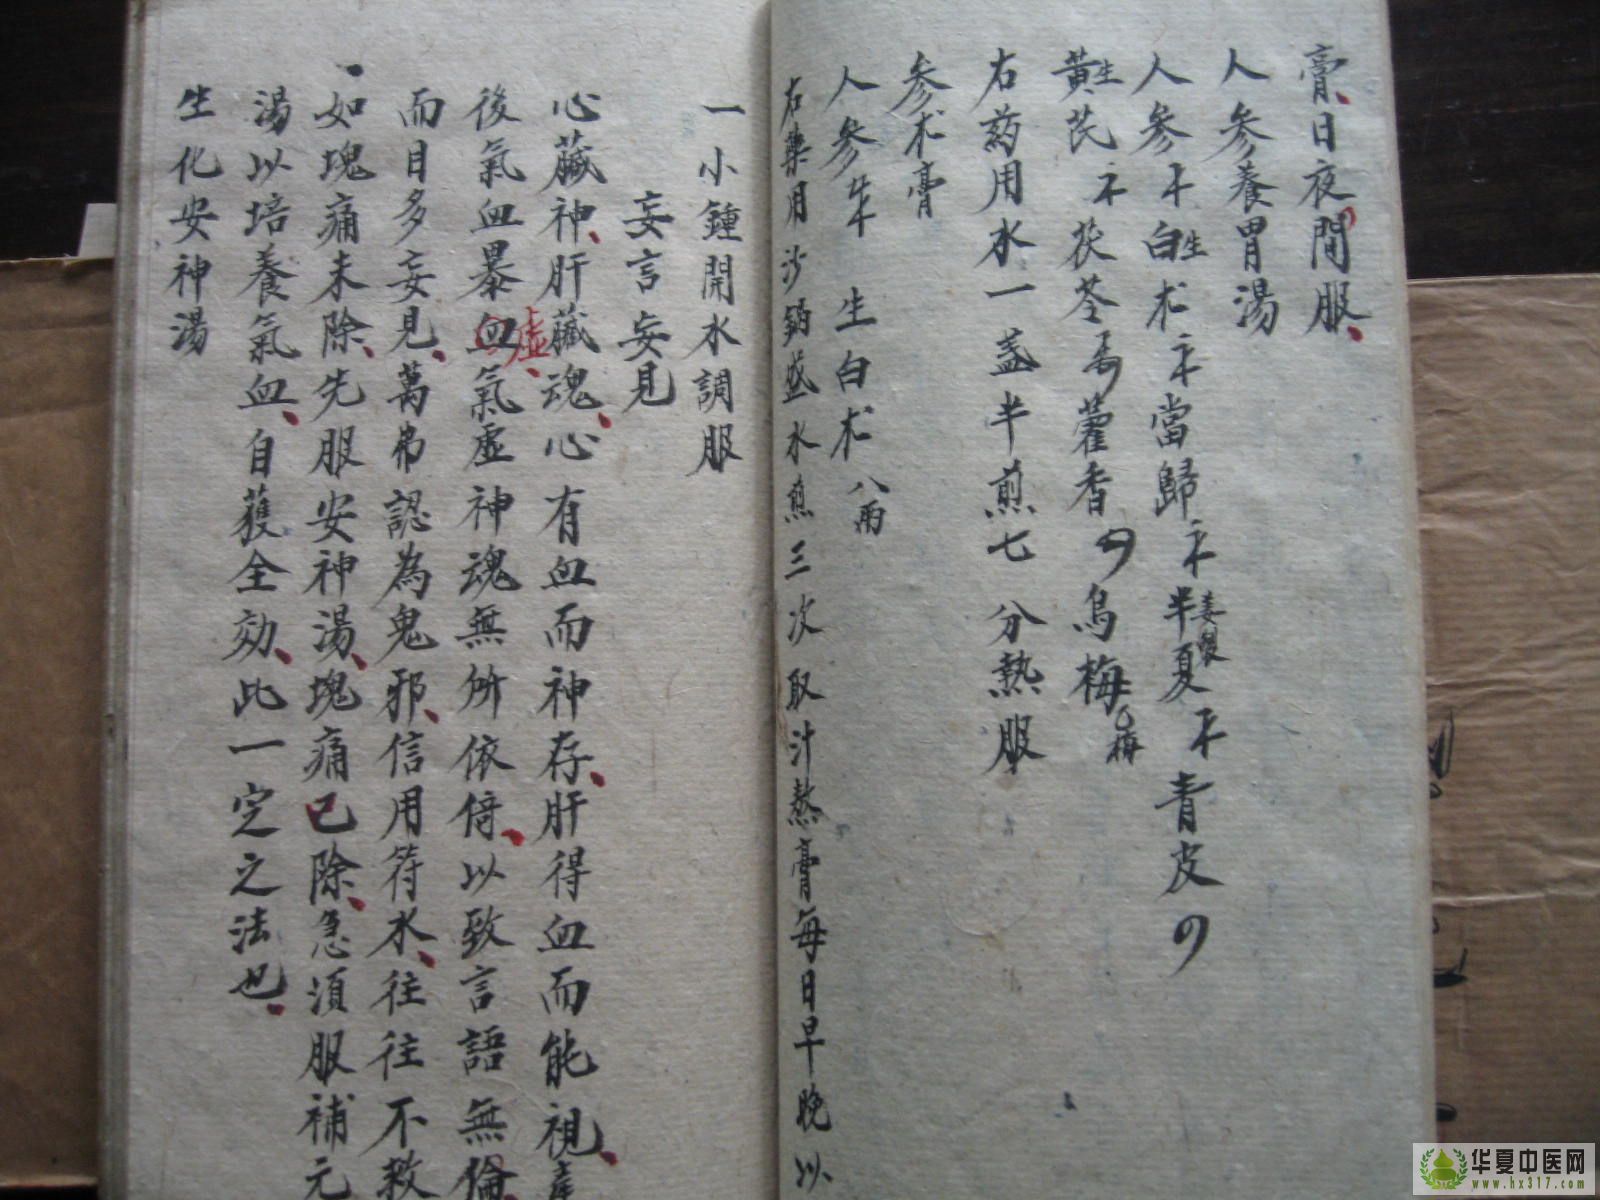 膏日夜間服
人參養胃湯
人參 生白朮 當歸 姜製半夏 青皮
生黃芪 茯苓 藿香 烏梅
右药用水一盞半煎七分熱服
参朮膏
人參 生白朮八兩
右藥用沙鍋盛水煎三次取汁熬膏每日早晚以
一小鍾開水調服
妄言妄見
心臟神肝臟魂心有血而神存肝得血而能視產
後氣血暴血虛氣虛神魂無所依倚以致言語無倫
而目多妄見萬弗認為鬼邪信用符水往往不救
如塊痛未除先服安神湯塊痛已除急須服補元
湯以培養氣血自獲全効此一定之法也
生化安神湯
华夏中医网
www.hx317.com